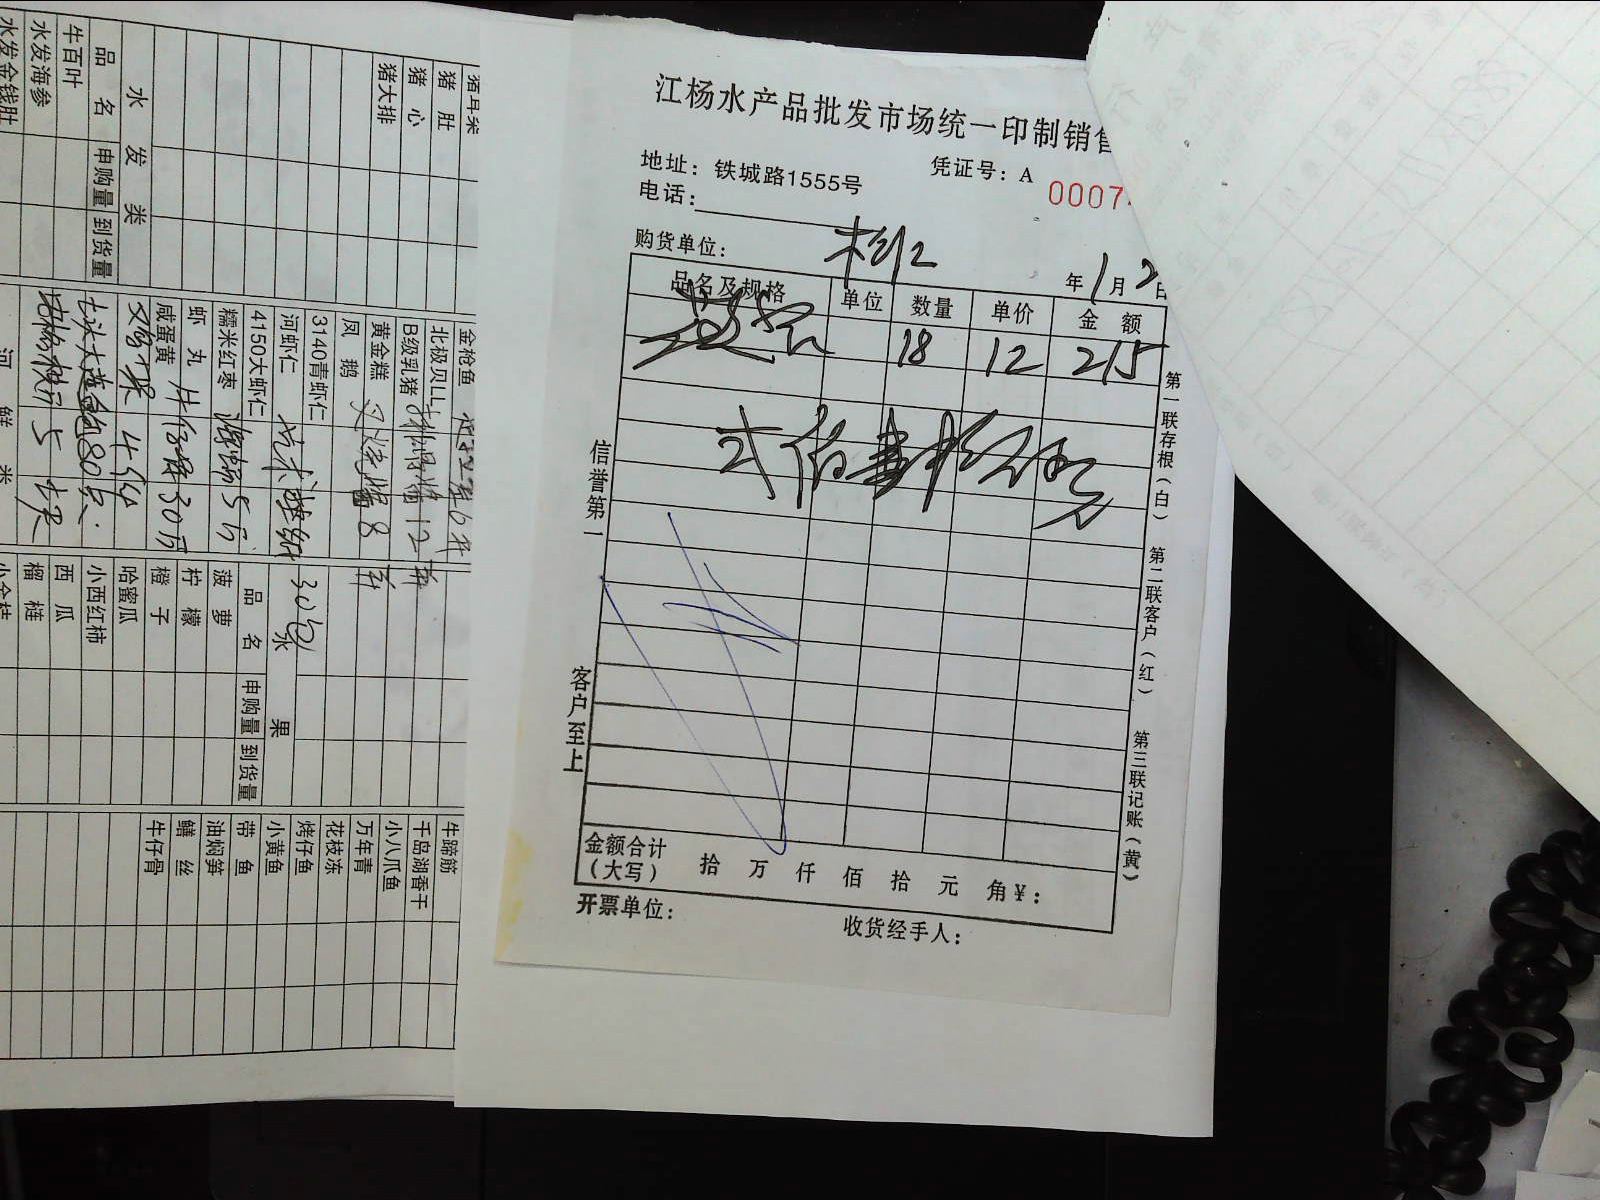 江杨水产品批发市场统一印制销售
地址：铁城路1555号
凭证号：A
0007
电话：
购货单位：
年1月2日
品名及规格 单位 数量 单价 金额
18 12 215
贰佰壹拾伍
信誉第一
客户至上
第一联存根（白）
第二联客户（红）
第三联记账（黄）
金额合计（大写） 拾 万 仟 佰 拾 元 角￥：
开票单位：
收货经手人：
猪耳朵
猪肚
猪心
猪大排
水发类
品名 申购量 到货量
牛百叶
水发海参
水发金钱肚
金枪鱼
北极贝LL
B级乳猪 12
黄金糕 8
凤鹅
3140青虾仁
河虾仁
4150大虾仁
糯米红枣 5斤
虾丸
咸蛋黄 牛仔骨30斤
河鲜类
30包
水果
品名 申购量 到货量
菠萝
柠檬
橙子
哈蜜瓜
小西红柿
西瓜
榴梿
小金桔
牛蹄筋
千岛湖香干
小八爪鱼
万年青
花枝冻
烤仔鱼
小黄鱼
带鱼
油焖笋
鳝丝
牛仔骨